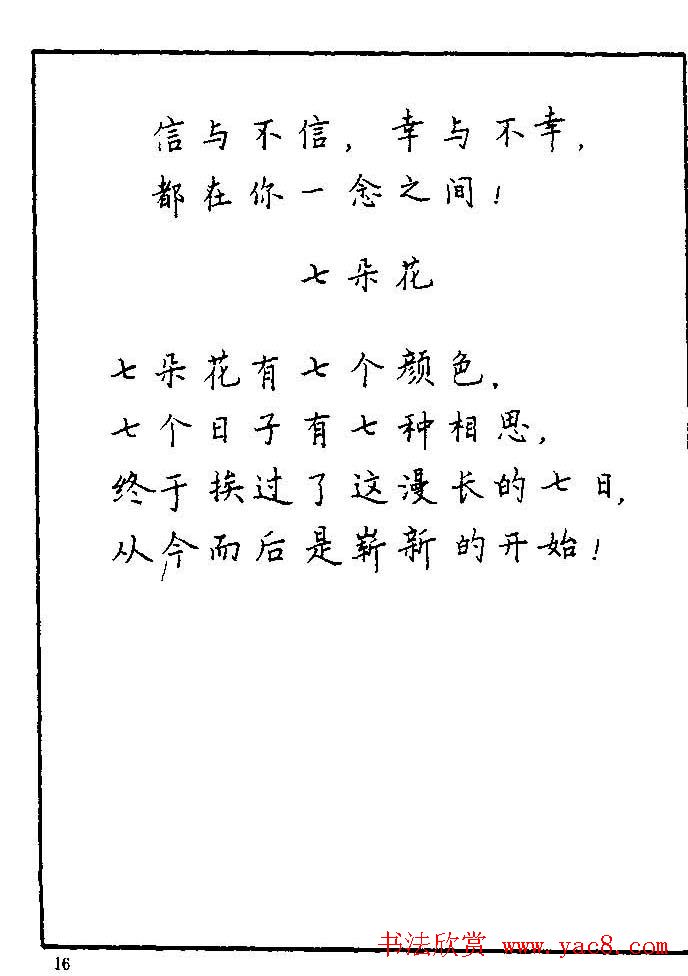 信与不信，幸与不幸，
都在你一念之间！
七朵花
七朵花有七个颜色．
七个日子有七种相思，
终于挨过了这漫长的七日，
从今而后是崭新的开始！
书法欣赏 www.yac8.com
16